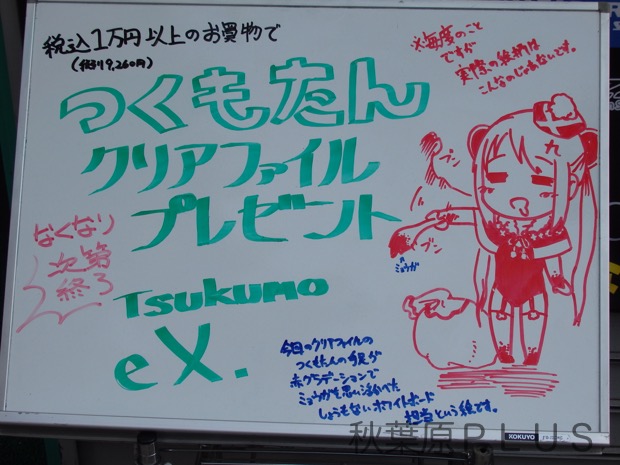 税込1万円以上のお買物で
(税抜9,260円)
つくもたん
クリアファイル
プレゼント
なくなり
次第
終了
Tsukumo
eX.
※毎度のこと
ですが
実際の絵柄は
こんなのじゃあないです。
九
ブン
ブン
ミョウガ
今回のクリアファイルの
つくもたんの手足が
赤グラデーションで
ミョウガを思い浮べた
しょうもないホワイトボード
担当という絵です。
秋葉原PLUS
KOKUYO